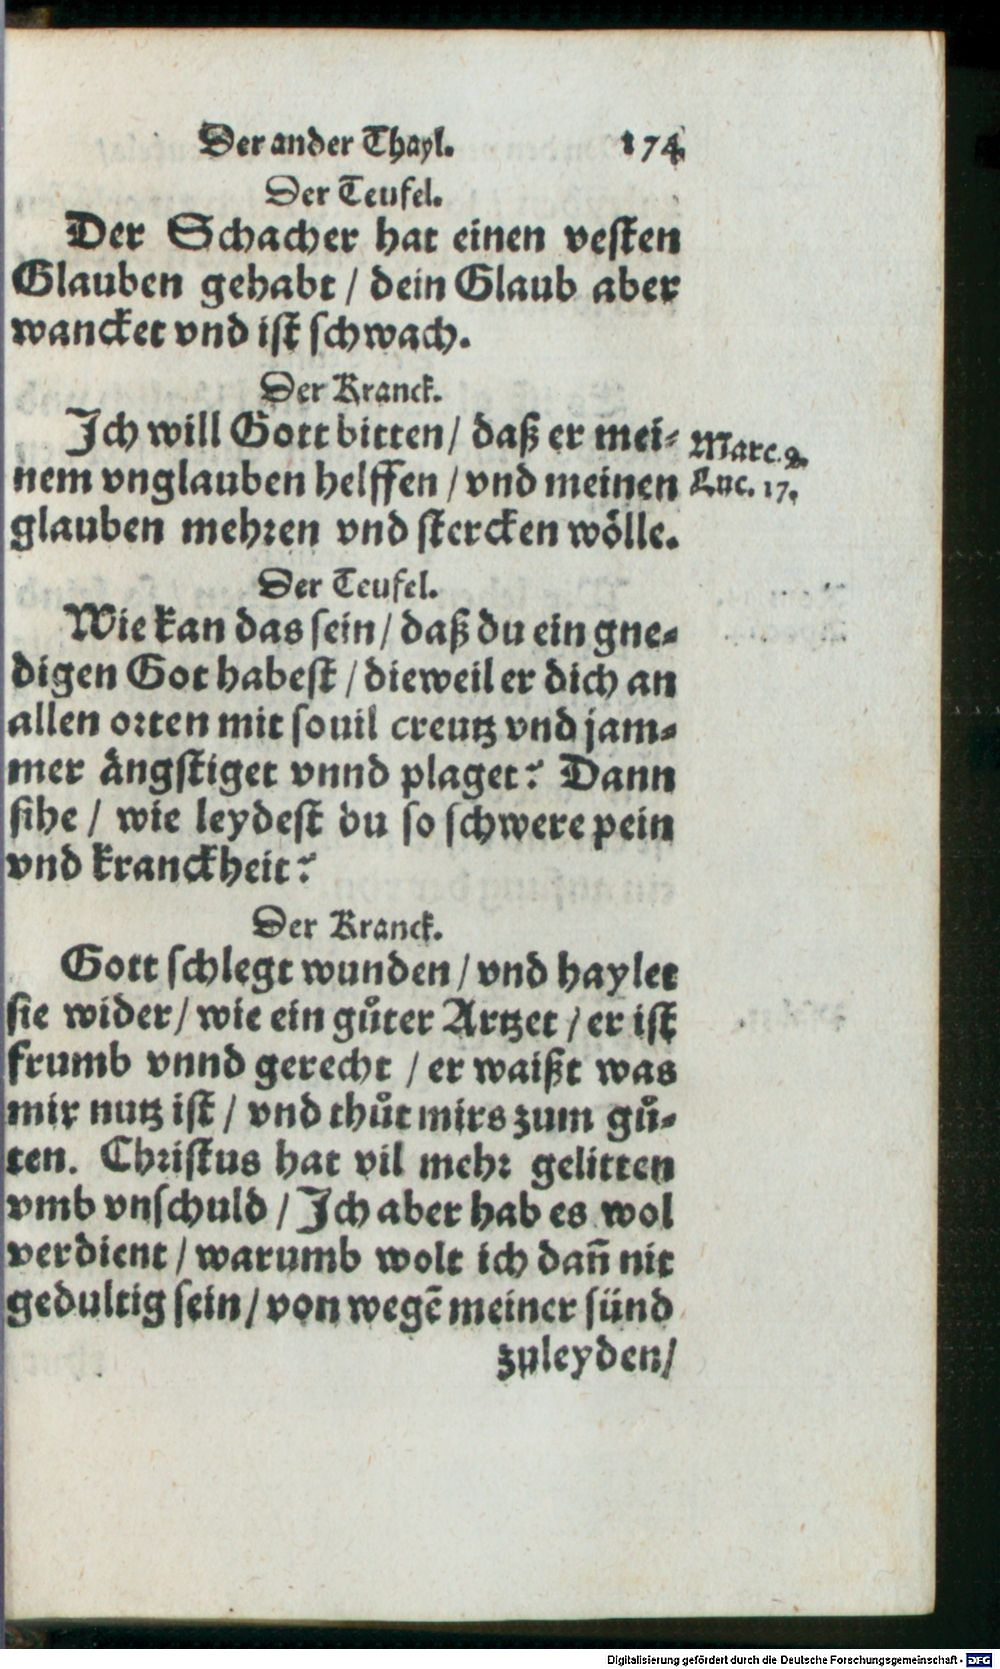 Der ander Thayl. 174
Der Teufel.
Der Schacher hat einen vesten
Glauben gehabt / dein Glaub aber
wancket vnd ist schwach.
Der Kranck.
Ich will Gott bitten / daß er mei-
nem vnglauben helffen / vnd meinen
glauben mehren vnd stercken wölle.
Marc. 9.
Luc. 17.
Der Teufel.
Wie kan das sein / daß du ein gne-
digen Got habest / dieweil er dich an
allen orten mit souil creutz vnd jam-
mer ängstiget vnnd plaget? Dann
sihe / wie leydest du so schwere pein
vnd kranckheit?
Der Kranck.
Gott schlegt wunden / vnd haylet
sie wider / wie ein gůter Artzet / er ist
frumb vnnd gerecht / er waißt was
mir nutz ist / vnd thůt mirs zum gů-
ten. Christus hat vil mehr gelitten
vmb vnschuld / Ich aber hab es wol
verdient / warumb wolt ich dañ nit
gedultig sein / von wegẽ meiner sünd
zuleyden /
Digitalisierung gefördert durch die Deutsche Forschungsgemeinschaft - DFG